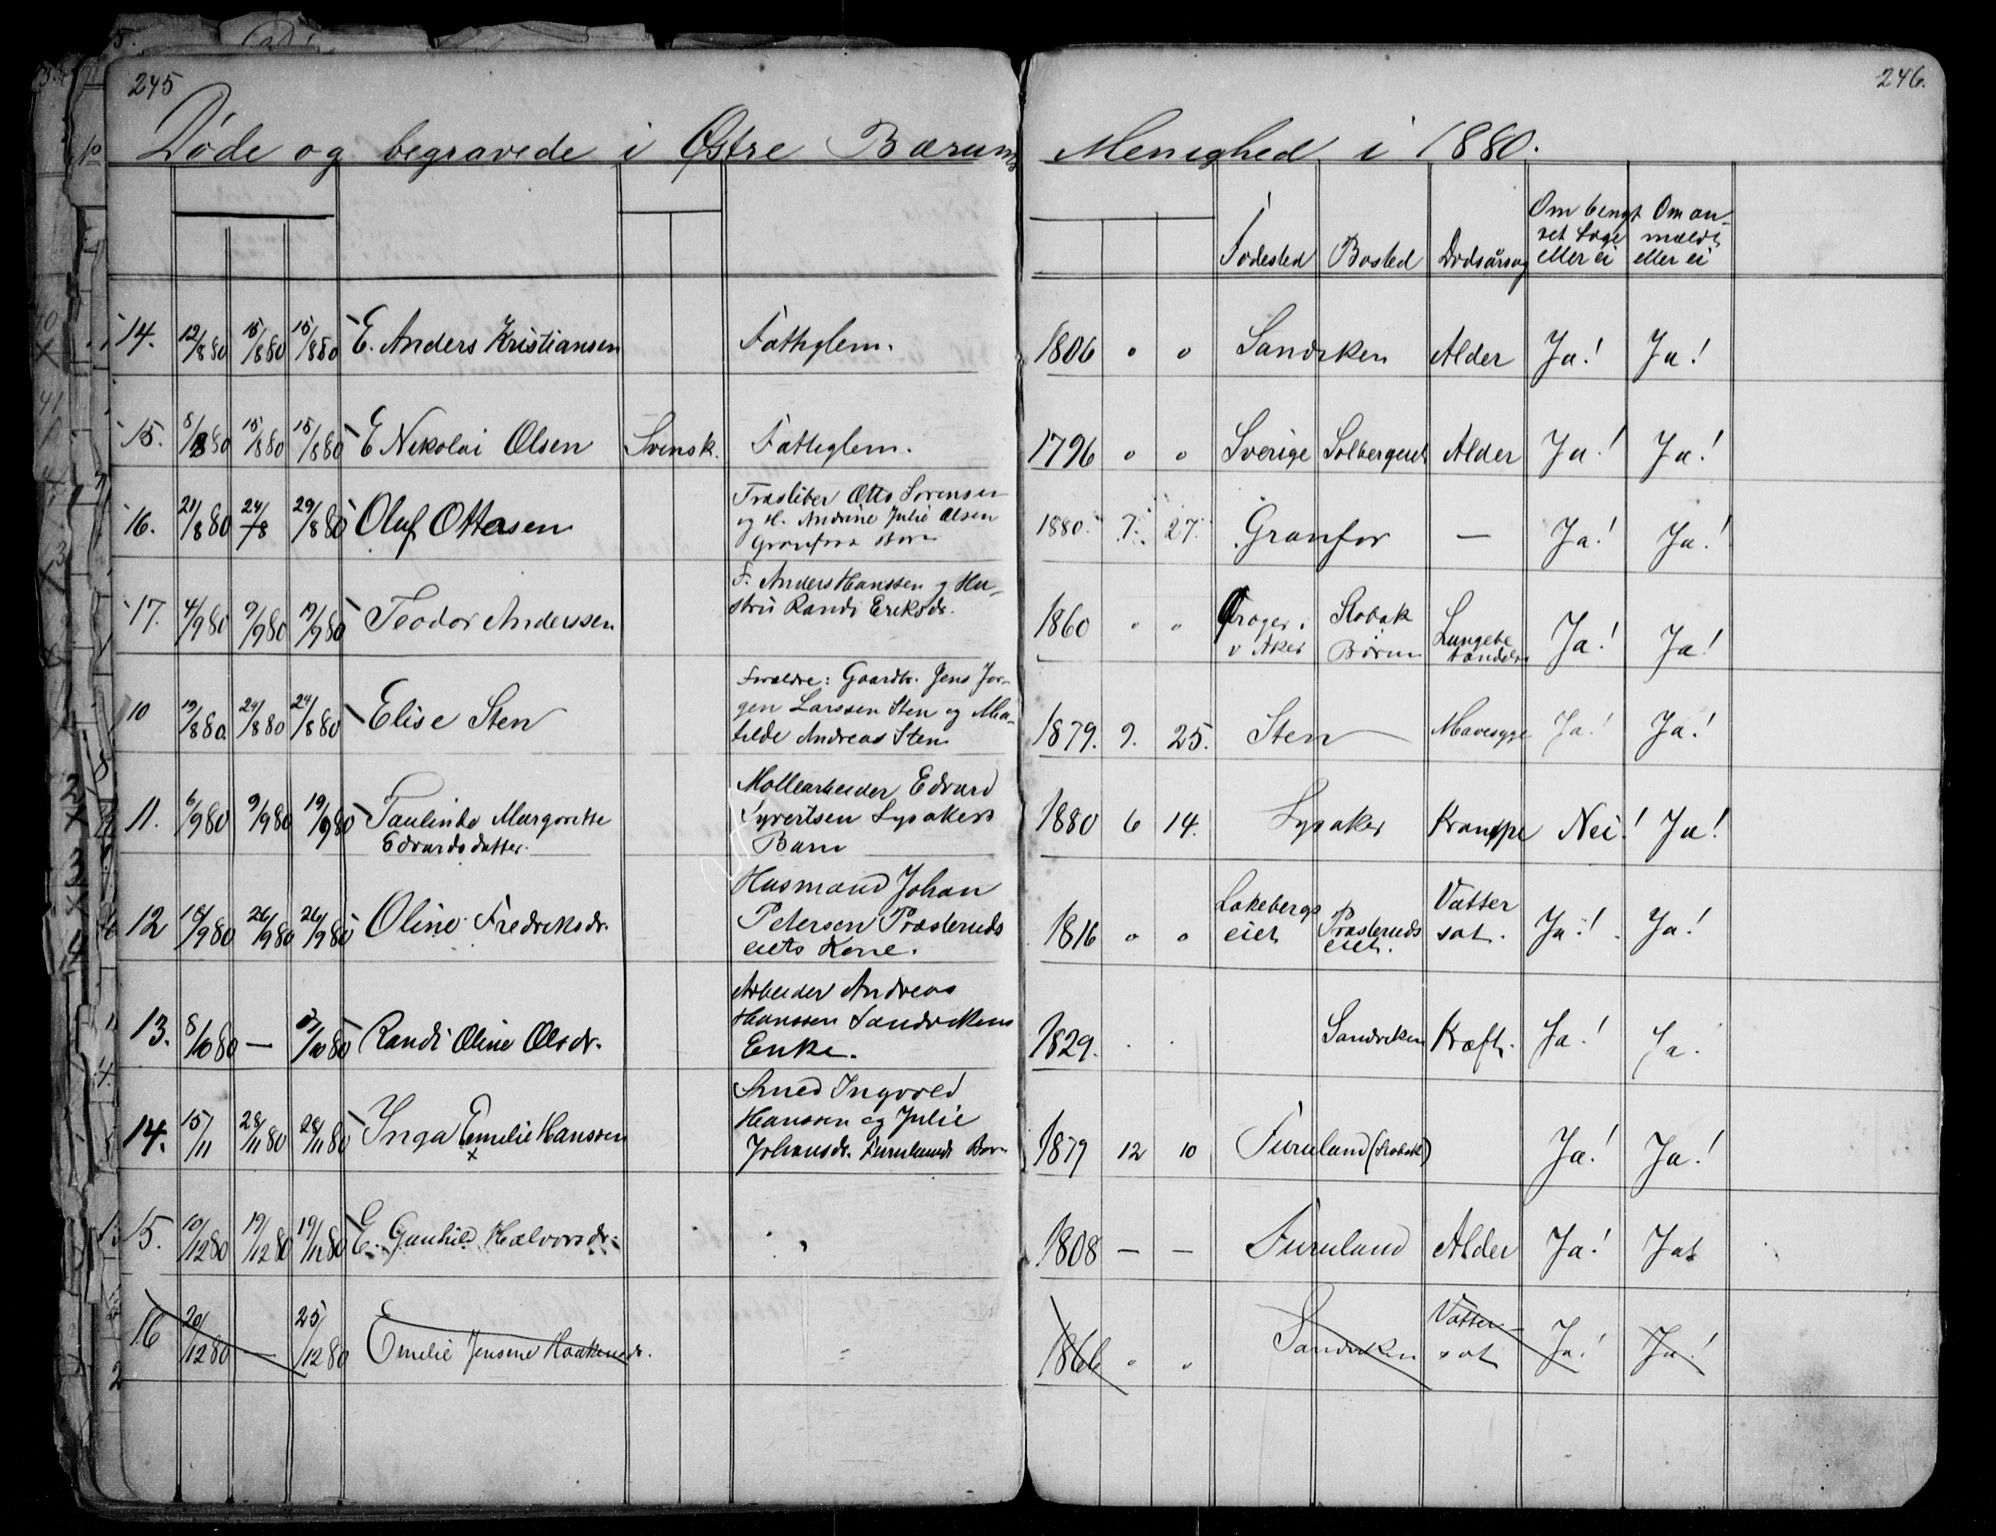 245
246.
Døde og begravede i Østre Bærums Menighed i 1880.
Fødested Bosted Dødsårsag
Om bengt Om an-
set Læge mældt
eller ei eller ei
14. 12/8 80 15/8 80 15/8 80 E. Anders Kristiansen Fattiglem. 1806 " " Sandviken Alder Ja! Ja!
15. 8/8 80 15/8 80 15/8 80 E Nikolai Olsen Svensk. Fattiglem. 1796 " " Sverige Solbergeiet Alder Ja! Ja!
16. 21/8 80 24/8 29/8 80 Oluf Ottersen
Træsliber Otto Sørensen
og H. Andrine Julie Olsen
1880. 7. 27. Granfor — Ja! Ja!
17. 4/9 80 9/9 80 19/9 80 Teodor Anderssen
F. Anders Hanssen g Hu-
stru Randi Eriksdr.
1860 " " i Aker Slobak Lungebe Ja! Ja!
10 19/8 80. 24/8 80 24/8 80 Elise Sten
Forældre: Gaardbr. Jens Jør-
gen Larssen Sten og Ma-
tilde Andreas Sten
1879. 9. 25. Sten Mavesyge Ja! Ja!
11. 6/9 80 9/9 80 19/9 80 Paulinde Margrethe
Edvardsdatter.
Møllearbeider Edvard
Syvertsen Lysakers
Barn
1880 6 14. Lysaker Krampe Nei! Ja!
12 18/9 80 26/9 80 26/9 80 Oline Fredriksdr.
Husmand Johan
Petersen Præsteruds
eiets Kone.
1816 " " Lakebergs
eiet Præsteruds
eiet. Vatter
sot. Ja! Ja!
13. 8/10 80 — /10 80 Randi Oline Olsdr.
Arbeider Andreas
Hanssen Sandvikens
Enke.
1829. . . Sandviken Kræft. Ja! Ja.
14. 15/11 28/11 80 28/11 80 Inga Emelie Hanssen
x
Smed Ingvold
Hanssen og Julie
Johansdr. Furulunds Bar
1879 12 10 Furuland (Slobak) Ja! Ja!
15. 10/12 80 19/12 80 19/12 80 E. Gunhild Halvorsdr. 1808 — — Furuland Alder Ja! Ja!
16 20/12 80 — 25/12 80 Emelie Jensene Haakensdr. " 1866 " " Sandviken Vatter-
sot Ja! Ja!